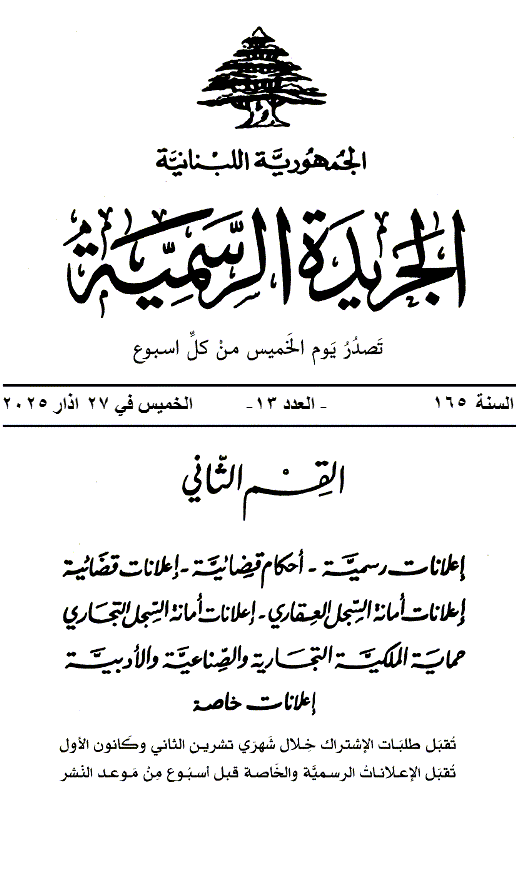 الجمهوريَّة اللبنانيَّة
الجريدة الرسميَّة
تَصدُرُ يَوم الخَميس منْ كلِّ اسبوع
السنة ١٦٥ - العدد ١٣- الخميس في ٢٧ اذار ٢٠٢٥
القِسْم الثّاني
إعلانات رسميَّة - أحكام قضائيَّة - إعلانات قضائية
إعلانات أمانة السِّجل العقاري - إعلانات أمانة السِّجل التجاري
حماية الملكيَّة التجارية والصِّناعيَّة والأدبيَّة
إعلانات خاصة
تُقبَل طلبَات الإشتراك خِلال شَهرَي تشرين الثاني وكَانون الأول
تُقبَل الإعلاناتُ الرسميَّة والخَاصة قبل أسبُوع مِنْ مَوعد النْشر